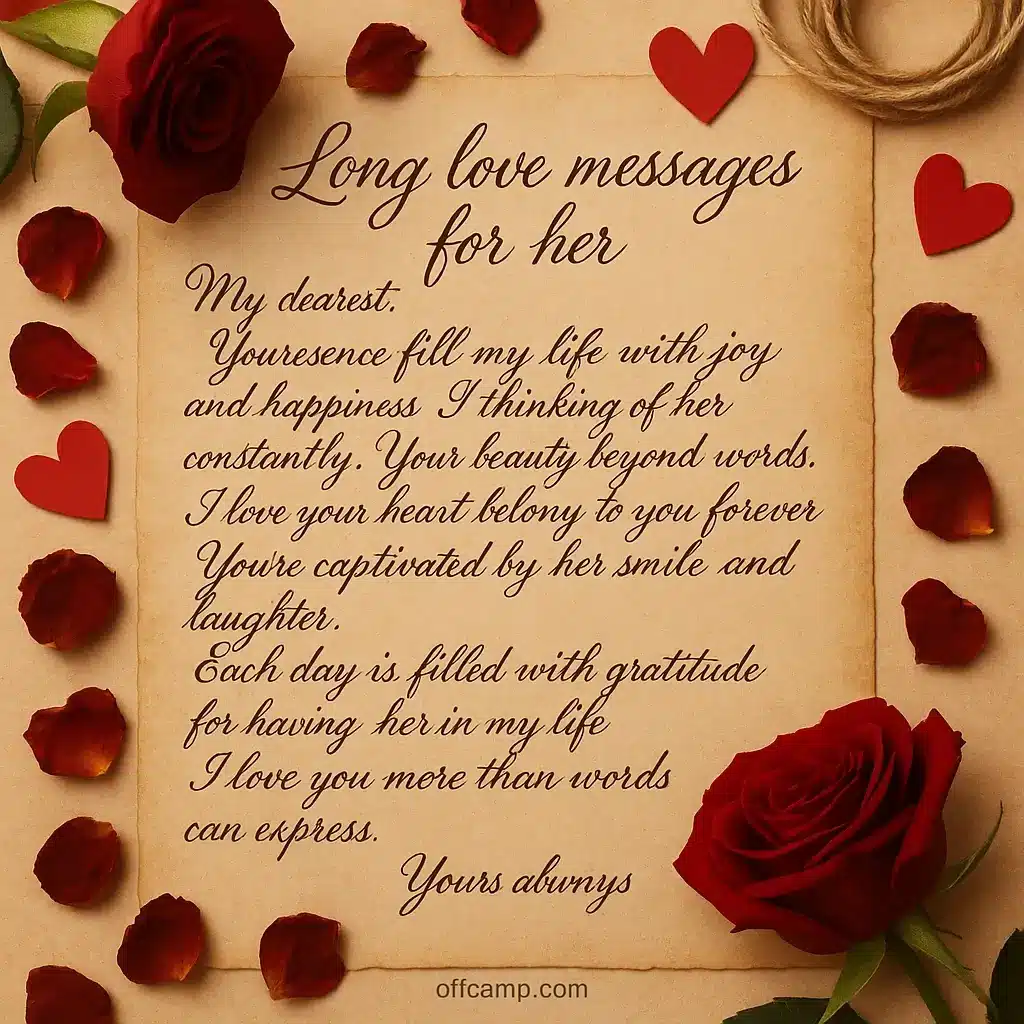 Long love messages
for her
My dearest.
Youresence fill my life with joy
and happiness I thinking of her
constantly. Your beauty beyond words.
I love your heart belony to you forever
You're captivated by her smile and
laughter.
Each day is filled with gratitude
for having her in my life
I love you more than words
can express.
Yours abwnys
offcamp.com